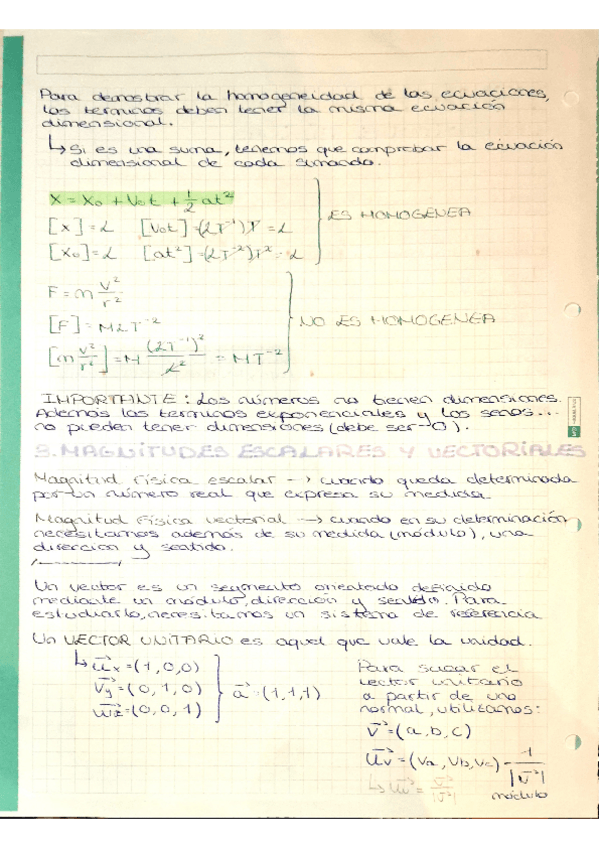 Para demostrar la homogeneidad de las ecuaciones,
los terminos deben tener la misma ecuación
dimensional.
↳ Si es una suma, tenemos que comprobar la ecuación
dimensional de cada sumando.
x = x₀ + v₀t + 1/2 at²
[x] = L [v₀t] = (LT⁻¹)T = L
ES HOMOGENEA
[x₀] = L [at²] = (LT⁻²)T² = L
F = m v²/r²
[F] = MLT⁻²
NO ES HOMOGENEA
[m v²/r²] = M (LT⁻¹)²/L² = MT⁻²
IMPORTANTE: Los números no tienen dimensiones.
Además los terminos exponenciales y los senos...
no pueden tener dimensiones (debe ser 0).
3. MAGNITUDES ESCALARES Y VECTORIALES
Magnitud física escalar → cuando queda determinada
por un número real que expresa su medida.
Magnitud física vectorial → cuando en su determinación
necesitamos además de su medida (módulo), una
direccion y sentido.
Un vector es un segmento orientado definido
mediante un módulo, dirección y sentido. Para
estudiarlo, necesitamos un sistema de referencia
Un VECTOR UNITARIO es aquel que vale la unidad.
↳ u⃗x = (1,0,0)
v⃗y = (0,1,0)
a⃗ = (1,1,1)
w⃗z = (0,0,1)
Para sacar el
vector unitario
a partir de uno
normal, utilizamos:
v⃗ = (a,b,c)
u⃗v = (va, vb, vc) · 1/|v⃗|
módulo
↳ u⃗v = v⃗/|v⃗|